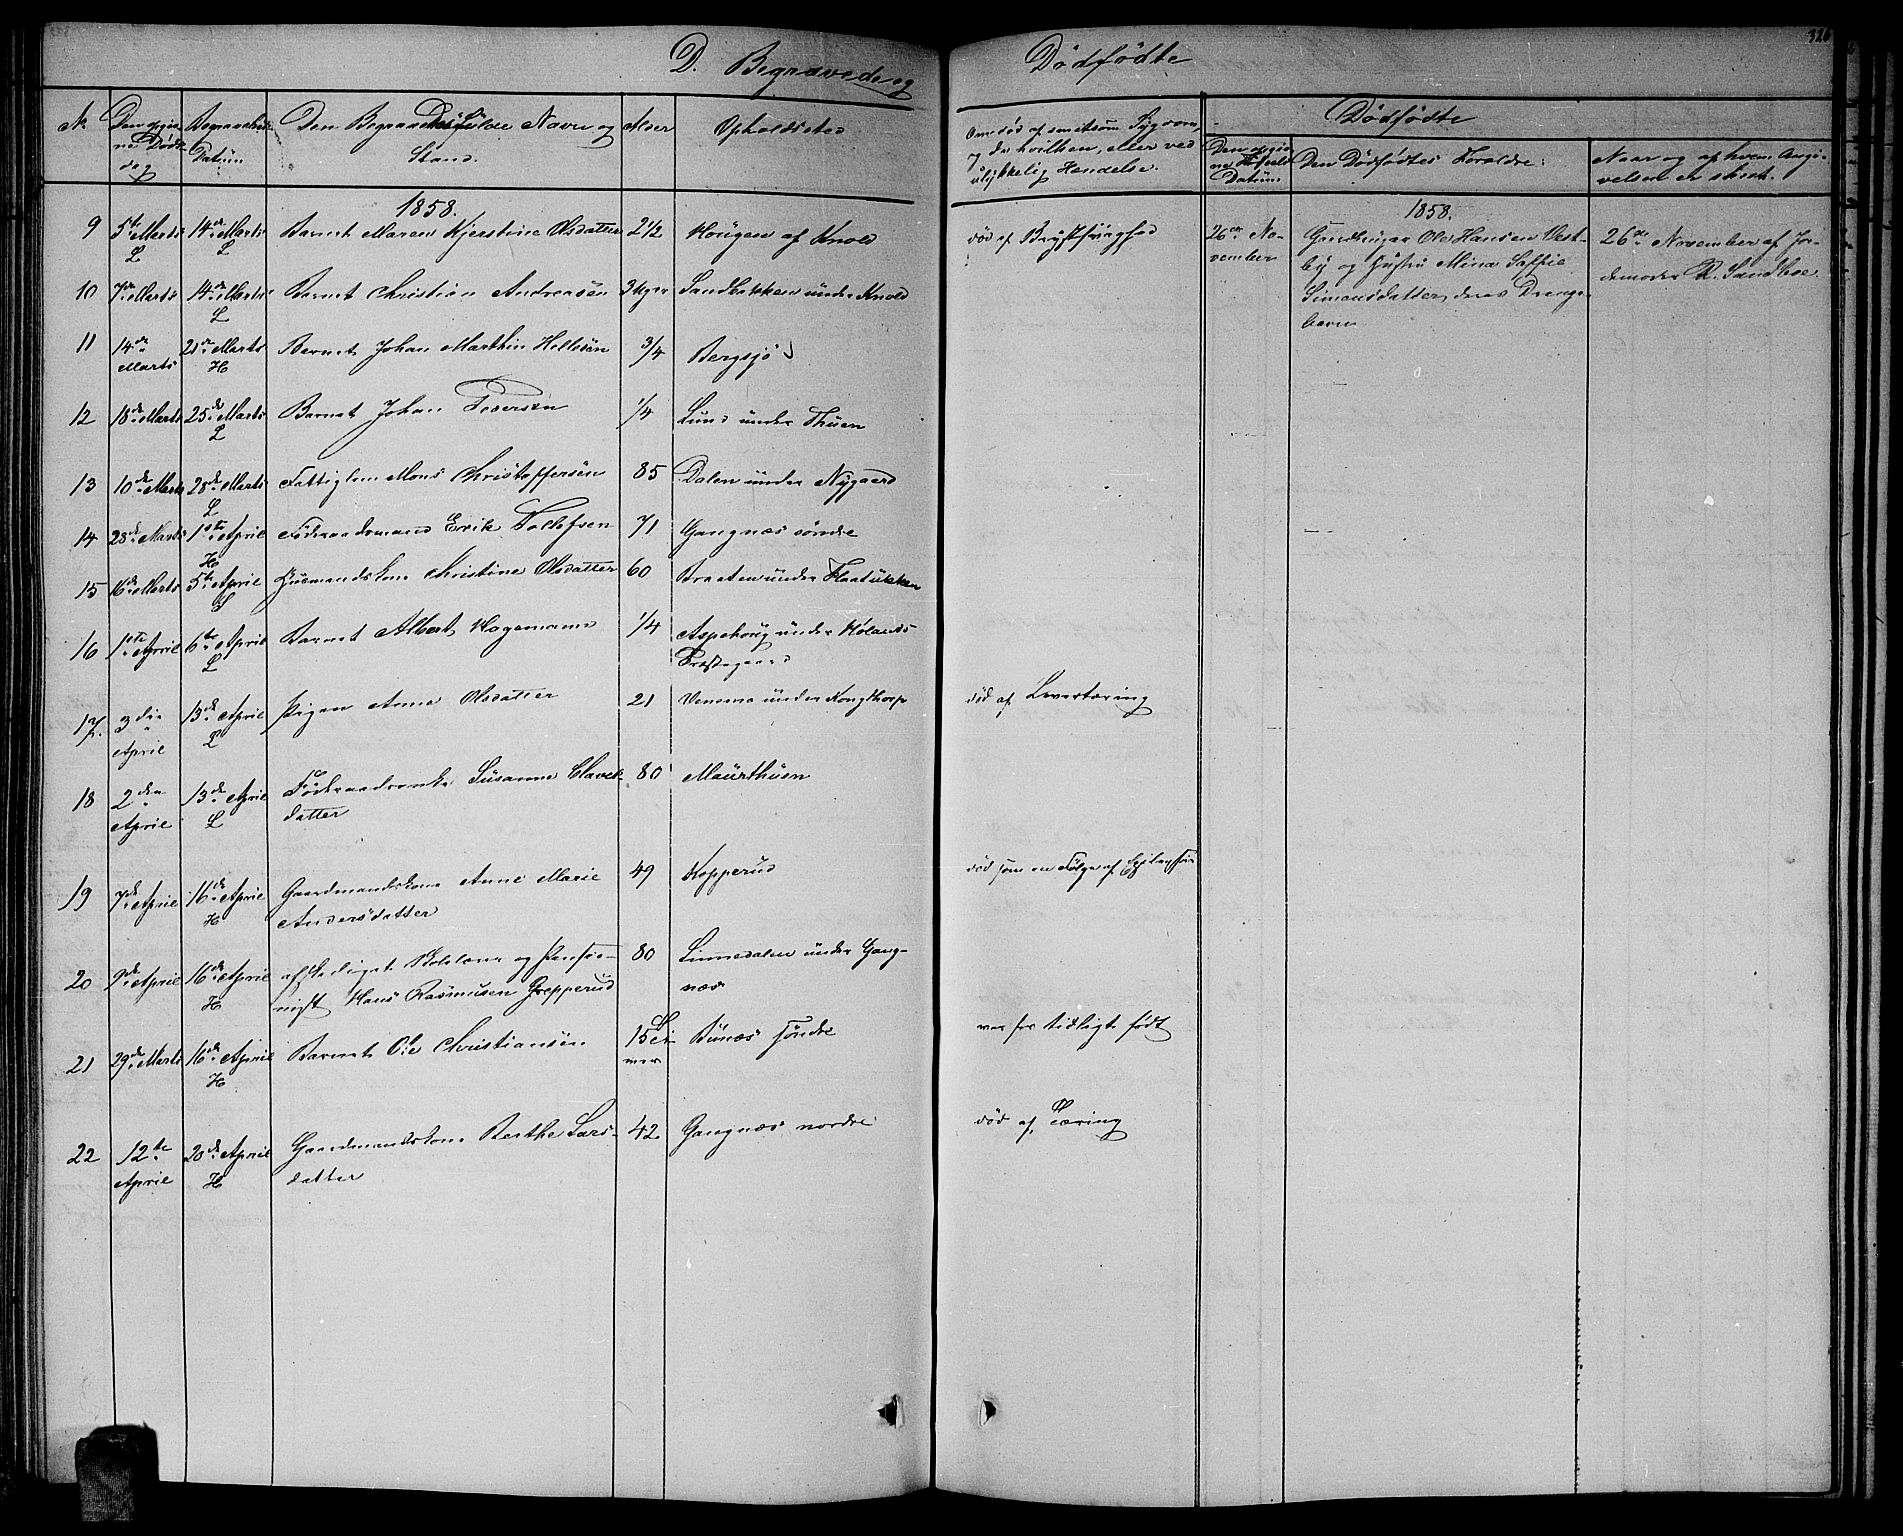 D. Begravede og Dødfødte
326
№ Den opgivne Døds dag Begravelses Datum Den Begravedes fulde Navn og Stand. Alder Opholdsted Om død af smitsom Sygdom, og da hvilken, eller ved ulykkelig Hændelse.
Dødfødte
Den opgivne Datum. Den Dødfødtes Forældre: Naar og af hvem Angivelsen er skeet.
1858. 1858.
9 5te Marts 14de Marts L Barnet Maren Kjerstine Olsdatter 2 1/2 Hougen af Knold død af Brystsvaghed
26de November Ole Hansen Vestby og Hustru Mina Simensdatter, deres Drengebarn 26de November af Jordemoder R. Sandboe
10 7de Marts 14de Marts L Barnet Christian Andreasen 3 Uger Sandbakken under Knold
11 14de Marts 21de Marts H Barnet Johan Marthin Hellesen 3/4 Bergsjø
12 18de Marts 25de Marts L Barnet Johan Pedersen 1/4 Lund under Thuen
13 10de Marts 28de Marts L Fattiglem Mons Christoffersen 85 Dalen under Nygaard
14 28de Marts 1ste April H Føderaadsmand Erik Tollefsen 71 Gangnæs søndre
15 16de Marts 5te April L Huusmandskone Christine Olsdatter 60 Braaten under
16 1ste April 6te April L Barnet Albert Hagemann 1/4 Aspehoug under Hølands Præstegaard
17. 3die April 13de April L Pigen Anne Olsdatter 21 under Kongthorp død af Levertæring
18 2den April 13de April L Føderaadsenke Susanne datter 80 Maurthuen
19 7de April 16de April H Gaardmandskone Anne Marie Andersdatter 49 Kopperud død som en Følge af
20 9de April 16de April H afskediget og Pensionist Hans Rasmusen Grepperud 80 Linnedalen under Gangnæs
21 29de Marts 16de April H Barnet Ole Christiansen 15 Timer Bunæs søndre var for tidligt født
22 12te April 20de April H Gaardmandskone Berthe Larsdatter 42 Gangnæs nordre død af Tæring